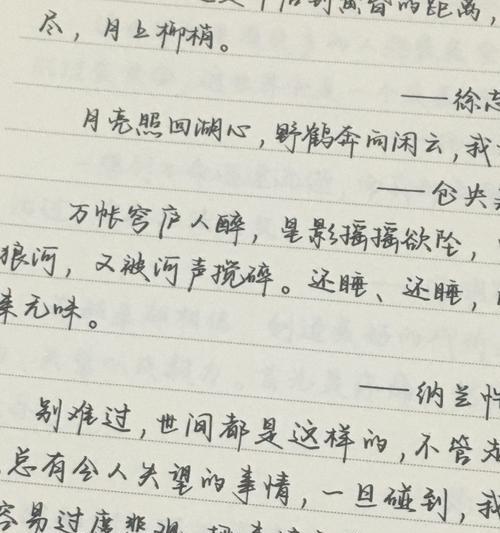 黄昏的距离，
尽，月上柳梢。
——徐志
月亮照回湖心，野鹤奔向闲云，我
——仓央
万帐穹庐人醉，星影摇摇欲坠，
狼河，又被河声搅碎。还睡、还睡，
来无味。
——纳兰性
别难过，世间都是这样的，不管
总有令人失望的事情，一旦碰到，我
容易过度悲观